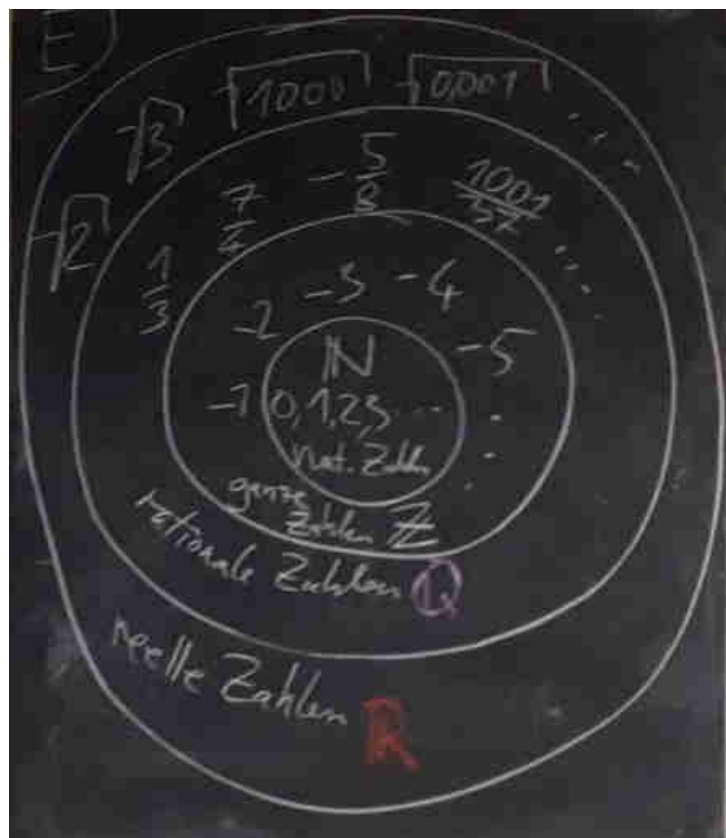 E
√2 √3 √1000 √0,001 ....
1/3 7/4 -5/8 1001/57 ....
-1 -2 -3 -4 -5 ...
ℕ
0,1,2,3....
Nat. Zahlen
ganze
Zahlen ℤ
rationale Zahlen ℚ
reelle Zahlen ℝ